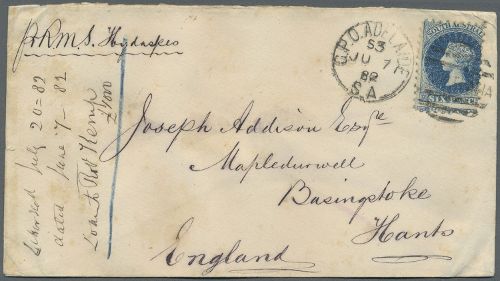 p. R.M.S. Hydaspes
G.P.O. ADELAIDE
S3
JU 7
82
S.A
SOUTH AUSTRALIA
SIX PENCE
Joseph Addison Esqre
Mapledurwell
Basingstoke
Hants
England
July 20-82
dated June 7-82
Loan to Robt Kemp